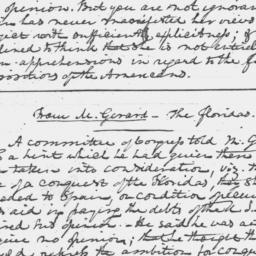 opinion. But you are not ignoran
has never manifested her views
ject with sufficiently explicitness; if
clined to think that she is not entirel
m apprehensions in regard to the f
positions of the Americans.
From M. Gerard - The Floridas.
A committee of Congress told M. G
a hint which he had given them
taken into consideration, viz. th
of a conquest of the Floridas, they sh
ceded to Spain, on condition
aid in paying the debts of the
his opinion - He said he was
give no opinion; that he thought th
the ambition for conqu